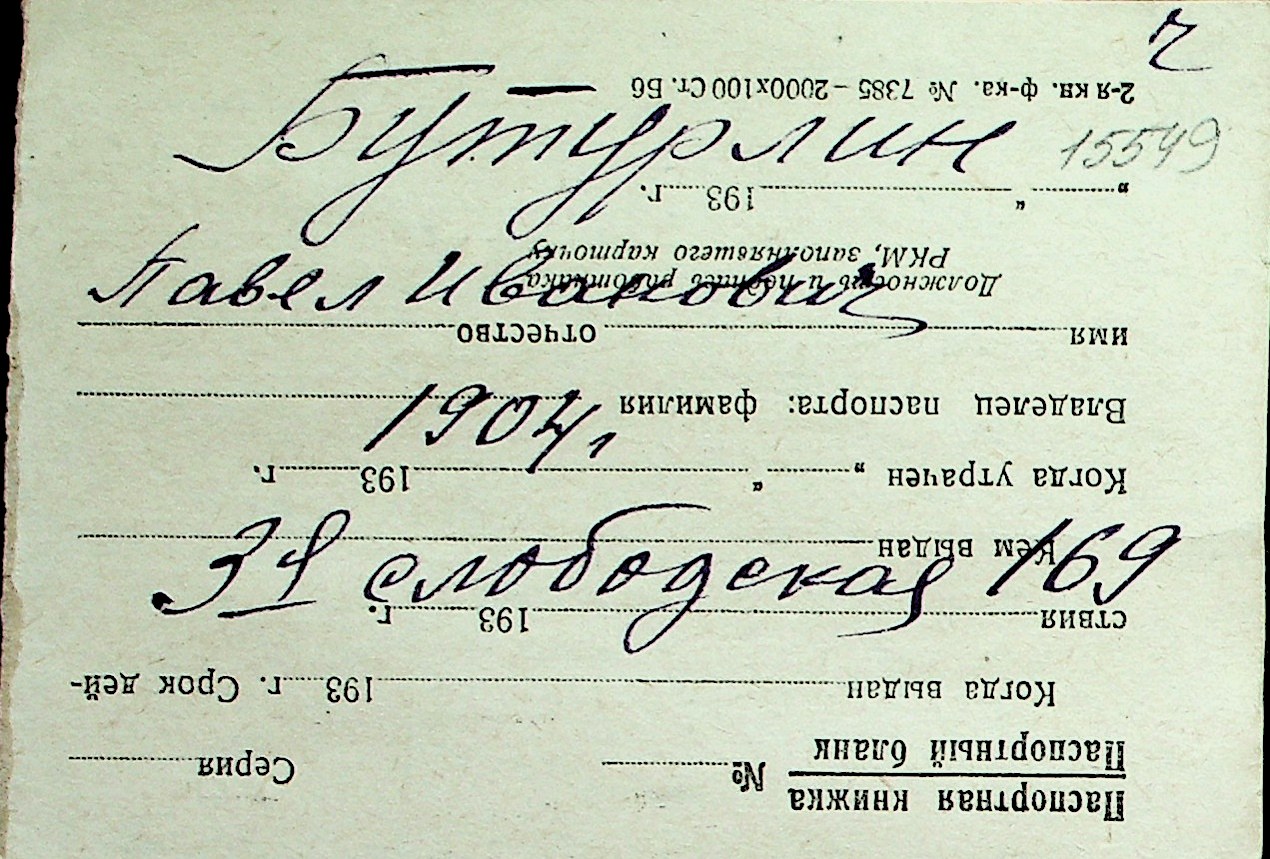 ч
Бутурлин
15549
Павел Иванович
1904,
3я слободская 169
Паспортная книжка
Паспортный бланк
№ Серия
Когда выдан 193 г. Срок дей-
ствия 193 г.
Кем выдан
Когда утрачен „ “ 193 г.
Владелец паспорта: фамилия
имя отчество
Должность и подпись работника
РКМ, заполнявшего карточку
„ “ 193 г.
2-я кн. ф-ка. № 7385 – 2000х100 Ст. Б6